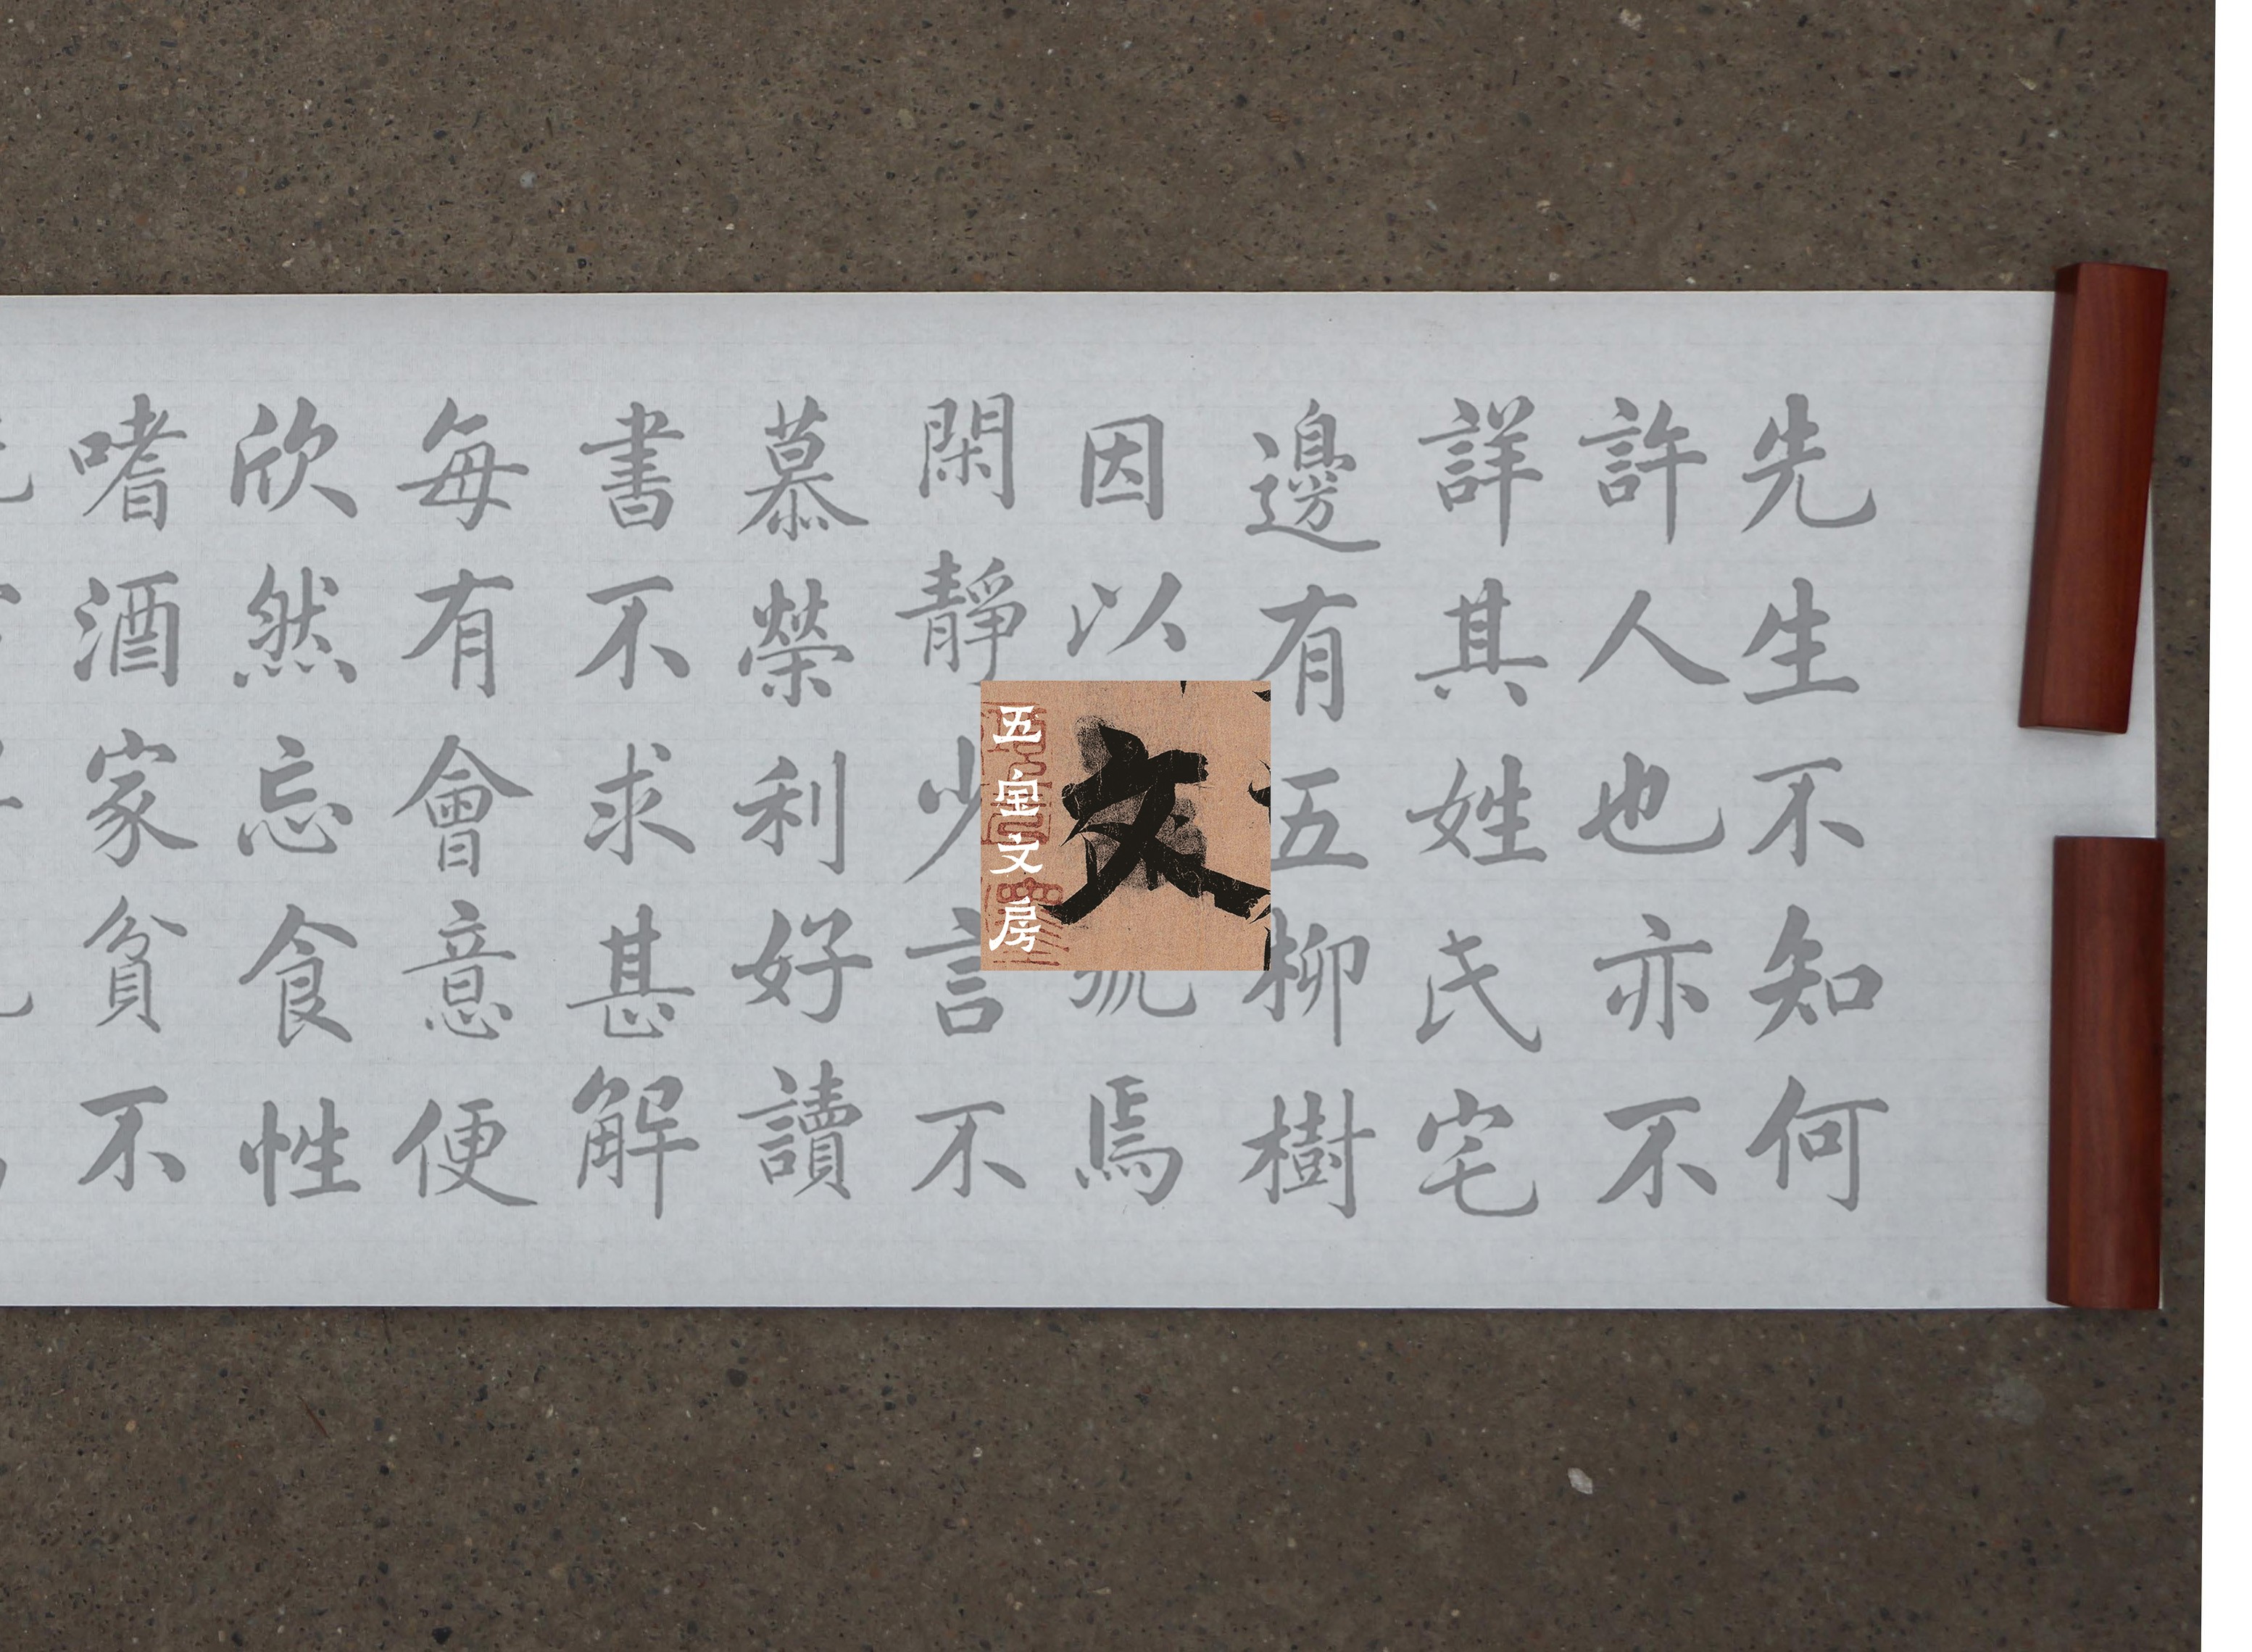 先生不知何
許人也亦不
詳其姓氏宅
邊有五柳樹
因以焉
閑靜少言不
慕榮利好讀
書不求甚解
每有會意便
欣然忘食性
嗜酒家貧不
文
五宝文房